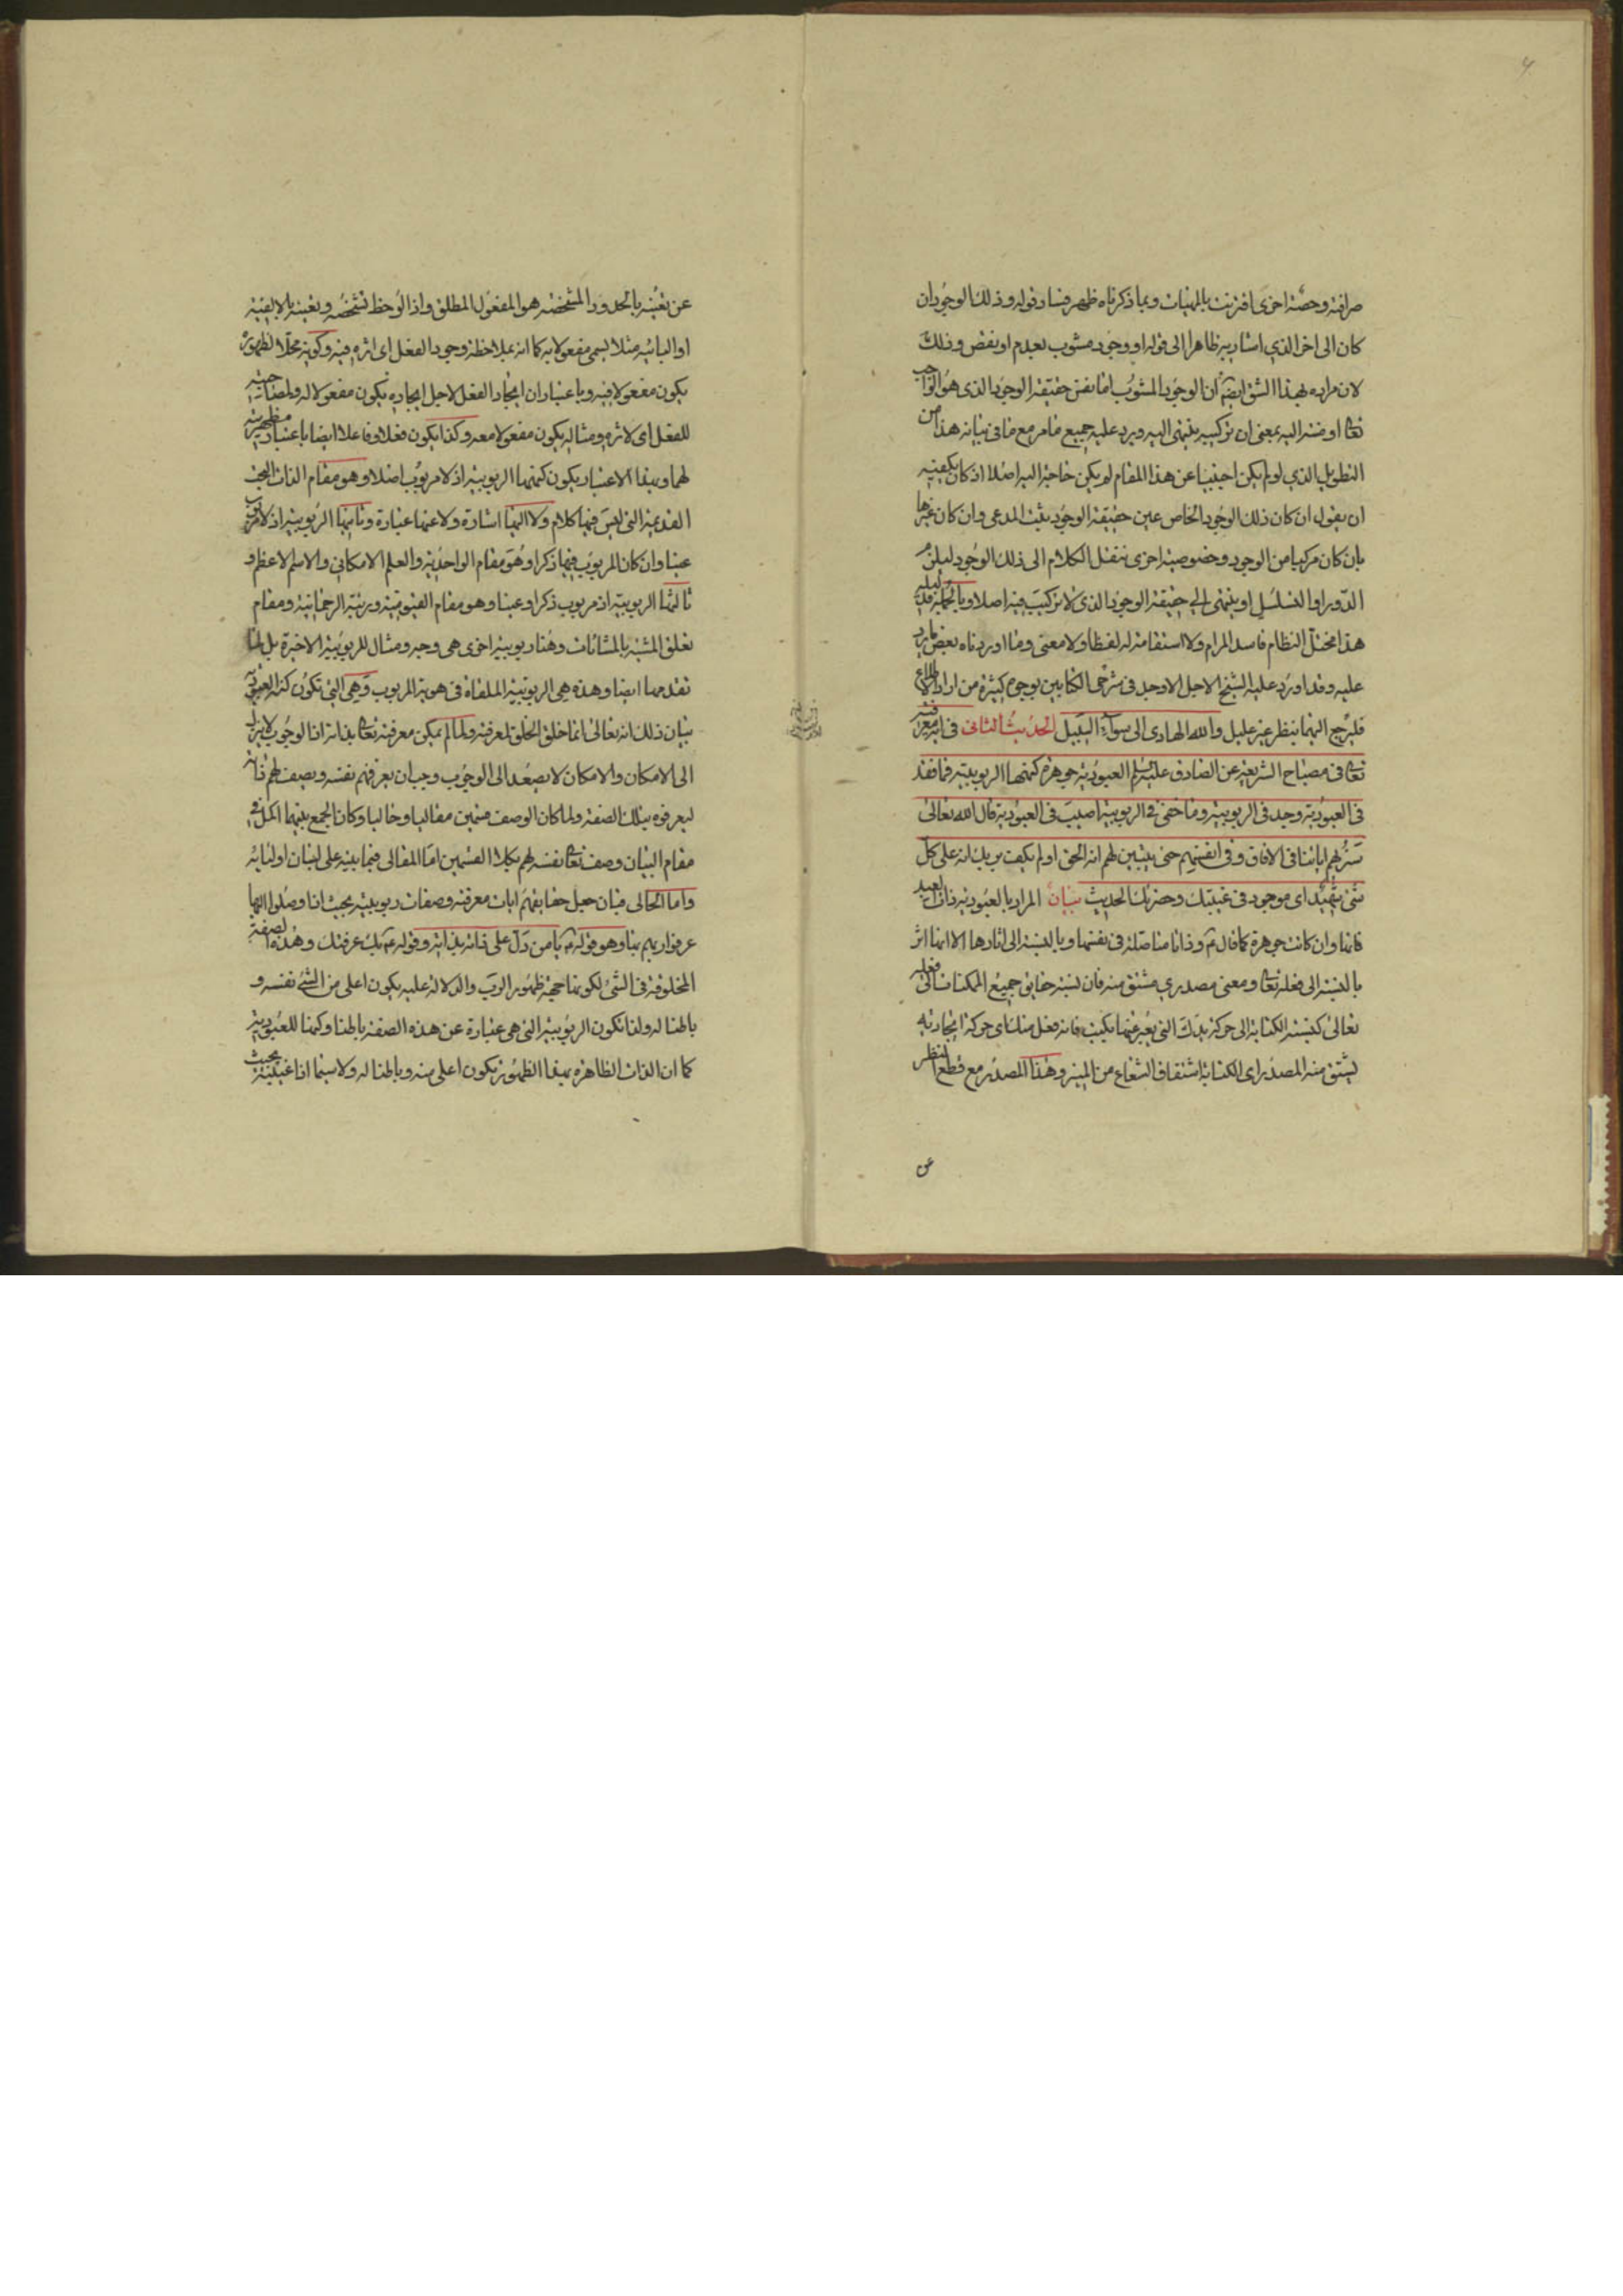 صرافته وحصّة اخرى اقترنت بالمهيات وبما ذكرناه ظهر فساد قوله وذلك الوجود ان
كان الى اخر الذي اشار به ظاهرا الى قوله او وجود مشوب بعدم او نقص وذلك
لان مراده بهذا الشق ايضا ان الوجود المشوب اما نفس حقيقة الوجود الذى هو الواجب
تعالى او مفتقر اليه بمعنى ان تركيبه ينتهى اليه ويرد عليه جميع ما مر مع ما فى بيانه هذا من
التطويل الذي لو لم يكن اجنبيا عن هذا المقام لم يكن حاجة اليه اصلا اذ كان يكفيه
ان يقول ان كان ذلك الوجود الخاص عين حقيقة الوجود يثبت المدعى وان كان غيرها
بان كان مركبا من الوجود وخصوصية اخرى ننقل الكلام الى ذلك الوجود ليلزم
الدور او التسلسل او ينتهى الى حقيقة الوجود الذى لا تركيب فيه اصلا وبالجملة
هذا مختل النظام فاسد المرام ولا استقامة له لفظا ولا معنى وما اوردناه بعض ما يرد
عليه وقد اورد عليه الشيخ الاجل الاوحد فى شرحى الكتابين بوجوه كثيرة من اراد الاطلاع
فليرجع اليهما بنظر غير عليل والله الهادى الى سواء السبيل الحديث الثانى فى معرفته
تعالى فى مصباح الشريعة عن الصادق عليه السلم العبودية جوهرة كنهها الربوبية فما فقد
فى العبودية وجد فى الربوبية وما خفى فى الربوبية اصيب فى العبودية قال الله تعالى
سنريهم اياتنا فى الافاق وفى انفسهم حتى يتبين لهم انه الحق اولم يكف بربك انه على كل
شئ شهيد اى موجود فى غيبتك وحضرتك الحديث بيان المراد بالعبودية ذات العبد
فانها وان كانت جوهرة كما قال ع وذاتا متاصلة فى نفسها وبالنسبة الى اثارها الا انها اثر
بالنسبة الى فعله تعالى ومعنى مصدري مشتق منه فان نسبة حقايق جميع الممكنات الى فعله
تعالى كنسبة الكتابة الى حركة يدك التى يعبر عنها بكتب فانه فعل منك اى حركة ايجادية
ليشتق منه المصدر اى الكتابة اشتقاق الشعاع من المنير وهذا المصدر مع قطع النظر
عن
عن تعينه بالحدود المشخصة هو المفعول المطلق واذا لوحظ تشخصه وتعينه بالابقية
او البائية مثلا يسمى مفعولا به كما انه بملاحظة وجود الفعل اى اثره فيه وكونه محلا لظهوره
يكون مفعولا فيه وباعتبار ان ايجاد الفعل لاجل ايجاده يكون مفعولا له ولمصاحبته
للفعل اى لاثره ومثاله يكون مفعولا معه وكذا يكون فعلا وفاعلا ايضا باعتبار مظهريته
لهما وبهذا الاعتبار يكون كنهها الربوبية اذ لا مربوب اصلا وهو مقام الذات البحت
القديمة التى ليس فيها كلام ولا اليها اشارة ولا عنها عبارة وثانيها الربوبية اذ لا مربوب
عينا وان كان المربوب فيها ذكرا وهو مقام الواحدية والعلم الامكاني والاسم الاعظم و
ثالثها الربوبية اذ مربوب ذكرا وعينا وهو مقام القيومية ورتبة الرحمانية ومقام
تعلق المشية بالمشاءات وهنا ربوبية اخرى هى وجه ومثال للربوبية الاخيرة بل لما
تقدمها ايضا وهذه هى الربوبية الملقاة فى هوية المربوب وهى التى تكون كنه العبودية
بيان ذلك انه تعالى انما خلق الخلق لمعرفته ولما لم يمكن معرفته تعالى بذاته اذ الوجوب لا ينزل
الى الامكان والامكان لا يصعد الى الوجوب وجب ان يعرفهم نفسه ويصف لهم ذاته
ليعرفوه بتلك الصفة ولما كان الوصف قسمين مقاليا وحاليا وكان الجمع بينهما اكمل فى
مقام البيان وصف تعالى نفسه لهم بكلا القسمين اما المقالى فبما بينه على لسان اوليائه
واما الحالى فبان جعل حقايقهم ايات معرفته وصفات ربوبيته بحيث اذا وصلوا اليها
عرفوا ربهم بها وهو قوله ع يا من دل على ذاته بذاته وقوله ع بك عرفتك وهذه الصفة
المخلوقة فى الشئ لكونها جهة ظهور الرب والدلالة عليه يكون اعلى من الشئ نفسه و
باطنا له ولذا تكون الربوبية التى هى عبارة عن هذه الصفة باطنا وكنها للعبودية
كما ان الذات الظاهرة بهذا الظهور تكون اعلى منه وباطنا له ولا سيما اذا بحيث